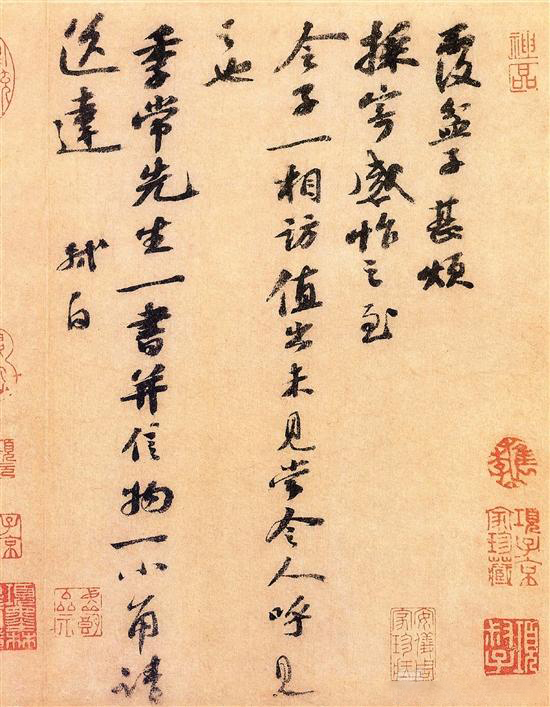 覆盆子甚煩
採寄感怍之至
令子一相訪值出未見當令人呼見
之也
季常先生一書并信物一小角請
送達
軾白
神品
項子京
家珍藏
安儀周
家珍藏